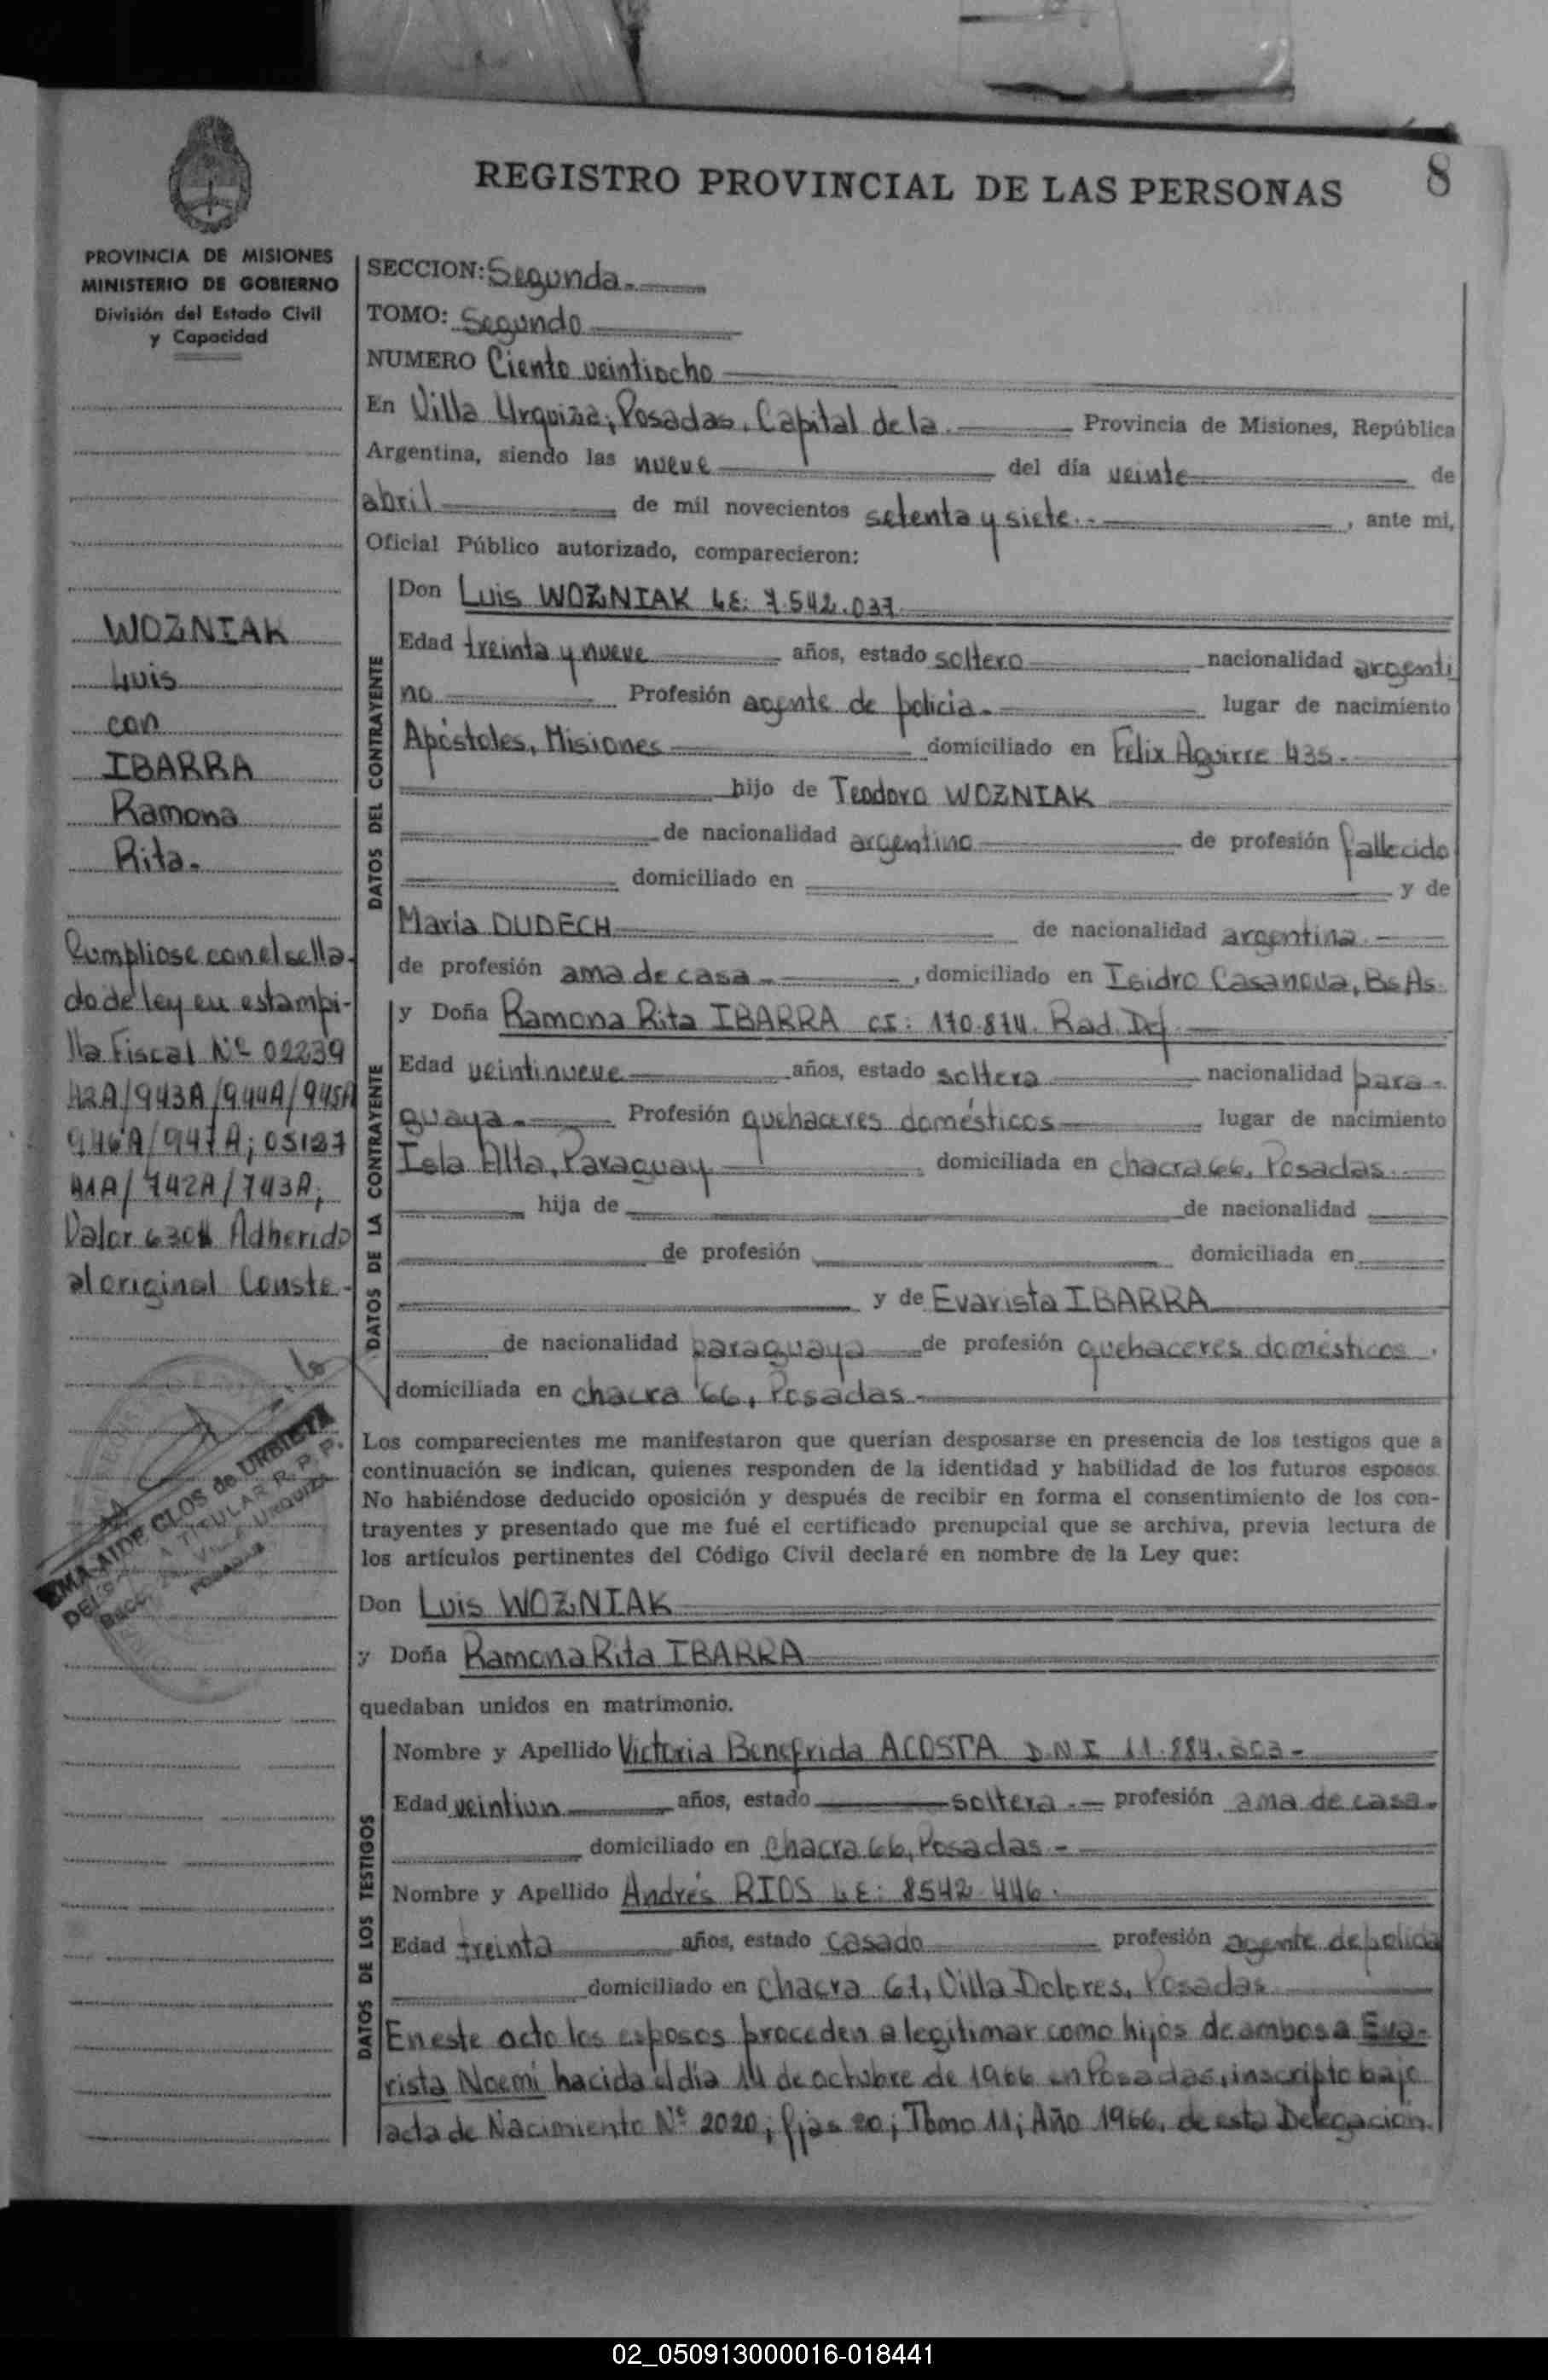 REGISTRO PROVINCIAL DE LAS PERSONAS
8
PROVINCIA DE MISIONES
MINISTERIO DE GOBIERNO
División del Estado Civil
y Capacidad
SECCION: Segunda.
TOMO: Segundo
NUMERO Ciento veintiocho
En Villa Urquiza, Posadas, Capital de la Provincia de Misiones, República
Argentina, siendo las nueve del día veinte de
abril de mil novecientos setenta y siete. , ante mi,
Oficial Público autorizado, comparecieron:
WOZNIAK
Luis
con
IBARRA
Ramona
Rita.
Cumpliose con el sella-
do de ley en estampi-
lla Fiscal Nº 02239
42A/943A/944A/945A
946A/947A; 05127
41A/742A/743A;
Valor 630$ Adherido
al original Conste-
DATOS DEL CONTRAYENTE
Don Luis WOZNIAK LE: 7.542.037
Edad treinta y nueve años, estado soltero nacionalidad argenti
no Profesión agente de policia. lugar de nacimiento
Apóstoles, Misiones domiciliado en Felix Aguirre 435.
hijo de Teodoro WOZNIAK
de nacionalidad argentino de profesión fallecido
domiciliado en y de
Maria DUDECH de nacionalidad argentina
de profesión ama de casa , domiciliado en Isidro Casanova, Bs As.
DATOS DE LA CONTRAYENTE
y Doña Ramona Rita IBARRA CI: 170.874. Rad. Def
Edad veintinueve años, estado soltera nacionalidad para-
guaya. Profesión quehaceres domésticos lugar de nacimiento
Isla Alta, Paraguay domiciliada en chacra 66, Posadas
hija de de nacionalidad
de profesión domiciliada en
y de Evarista IBARRA
de nacionalidad paraguaya de profesión quehaceres domésticos.
domiciliada en chacra 66, Posadas
EMA AIDE CLOS de URBIETA
TITULAR R. P. P.
VILLA URQUIZA
POSADAS
Los comparecientes me manifestaron que querían desposarse en presencia de los testigos que a
continuación se indican, quienes responden de la identidad y habilidad de los futuros esposos.
No habiéndose deducido oposición y después de recibir en forma el consentimiento de los con-
trayentes y presentado que me fué el certificado prenupcial que se archiva, previa lectura de
los artículos pertinentes del Código Civil declaré en nombre de la Ley que:
Don Luis WOZNIAK
y Doña Ramona Rita IBARRA
quedaban unidos en matrimonio.
DATOS DE LOS TESTIGOS
Nombre y Apellido Victoria Benefrida ACOSTA D.N.I 11.884.
Edad veintiun años, estado soltera. profesión ama de casa.
domiciliado en Chacra 66, Posadas
Nombre y Apellido Andrés RIOS LE: 8542 446.
Edad treinta años, estado casado profesión agente de policia
domiciliado en chacra 67, Villa Dolores, Posadas
En este acto los esposos proceden a legitimar como hijos de ambos a Eva-
rista Noemi nacida el dia 14 de octubre de 1966 en Posadas, inscripto bajo
acta de Nacimiento Nº 2020; fjas 20; Tomo 11; Año 1966, de esta Delegación.
02_050913000016-018441